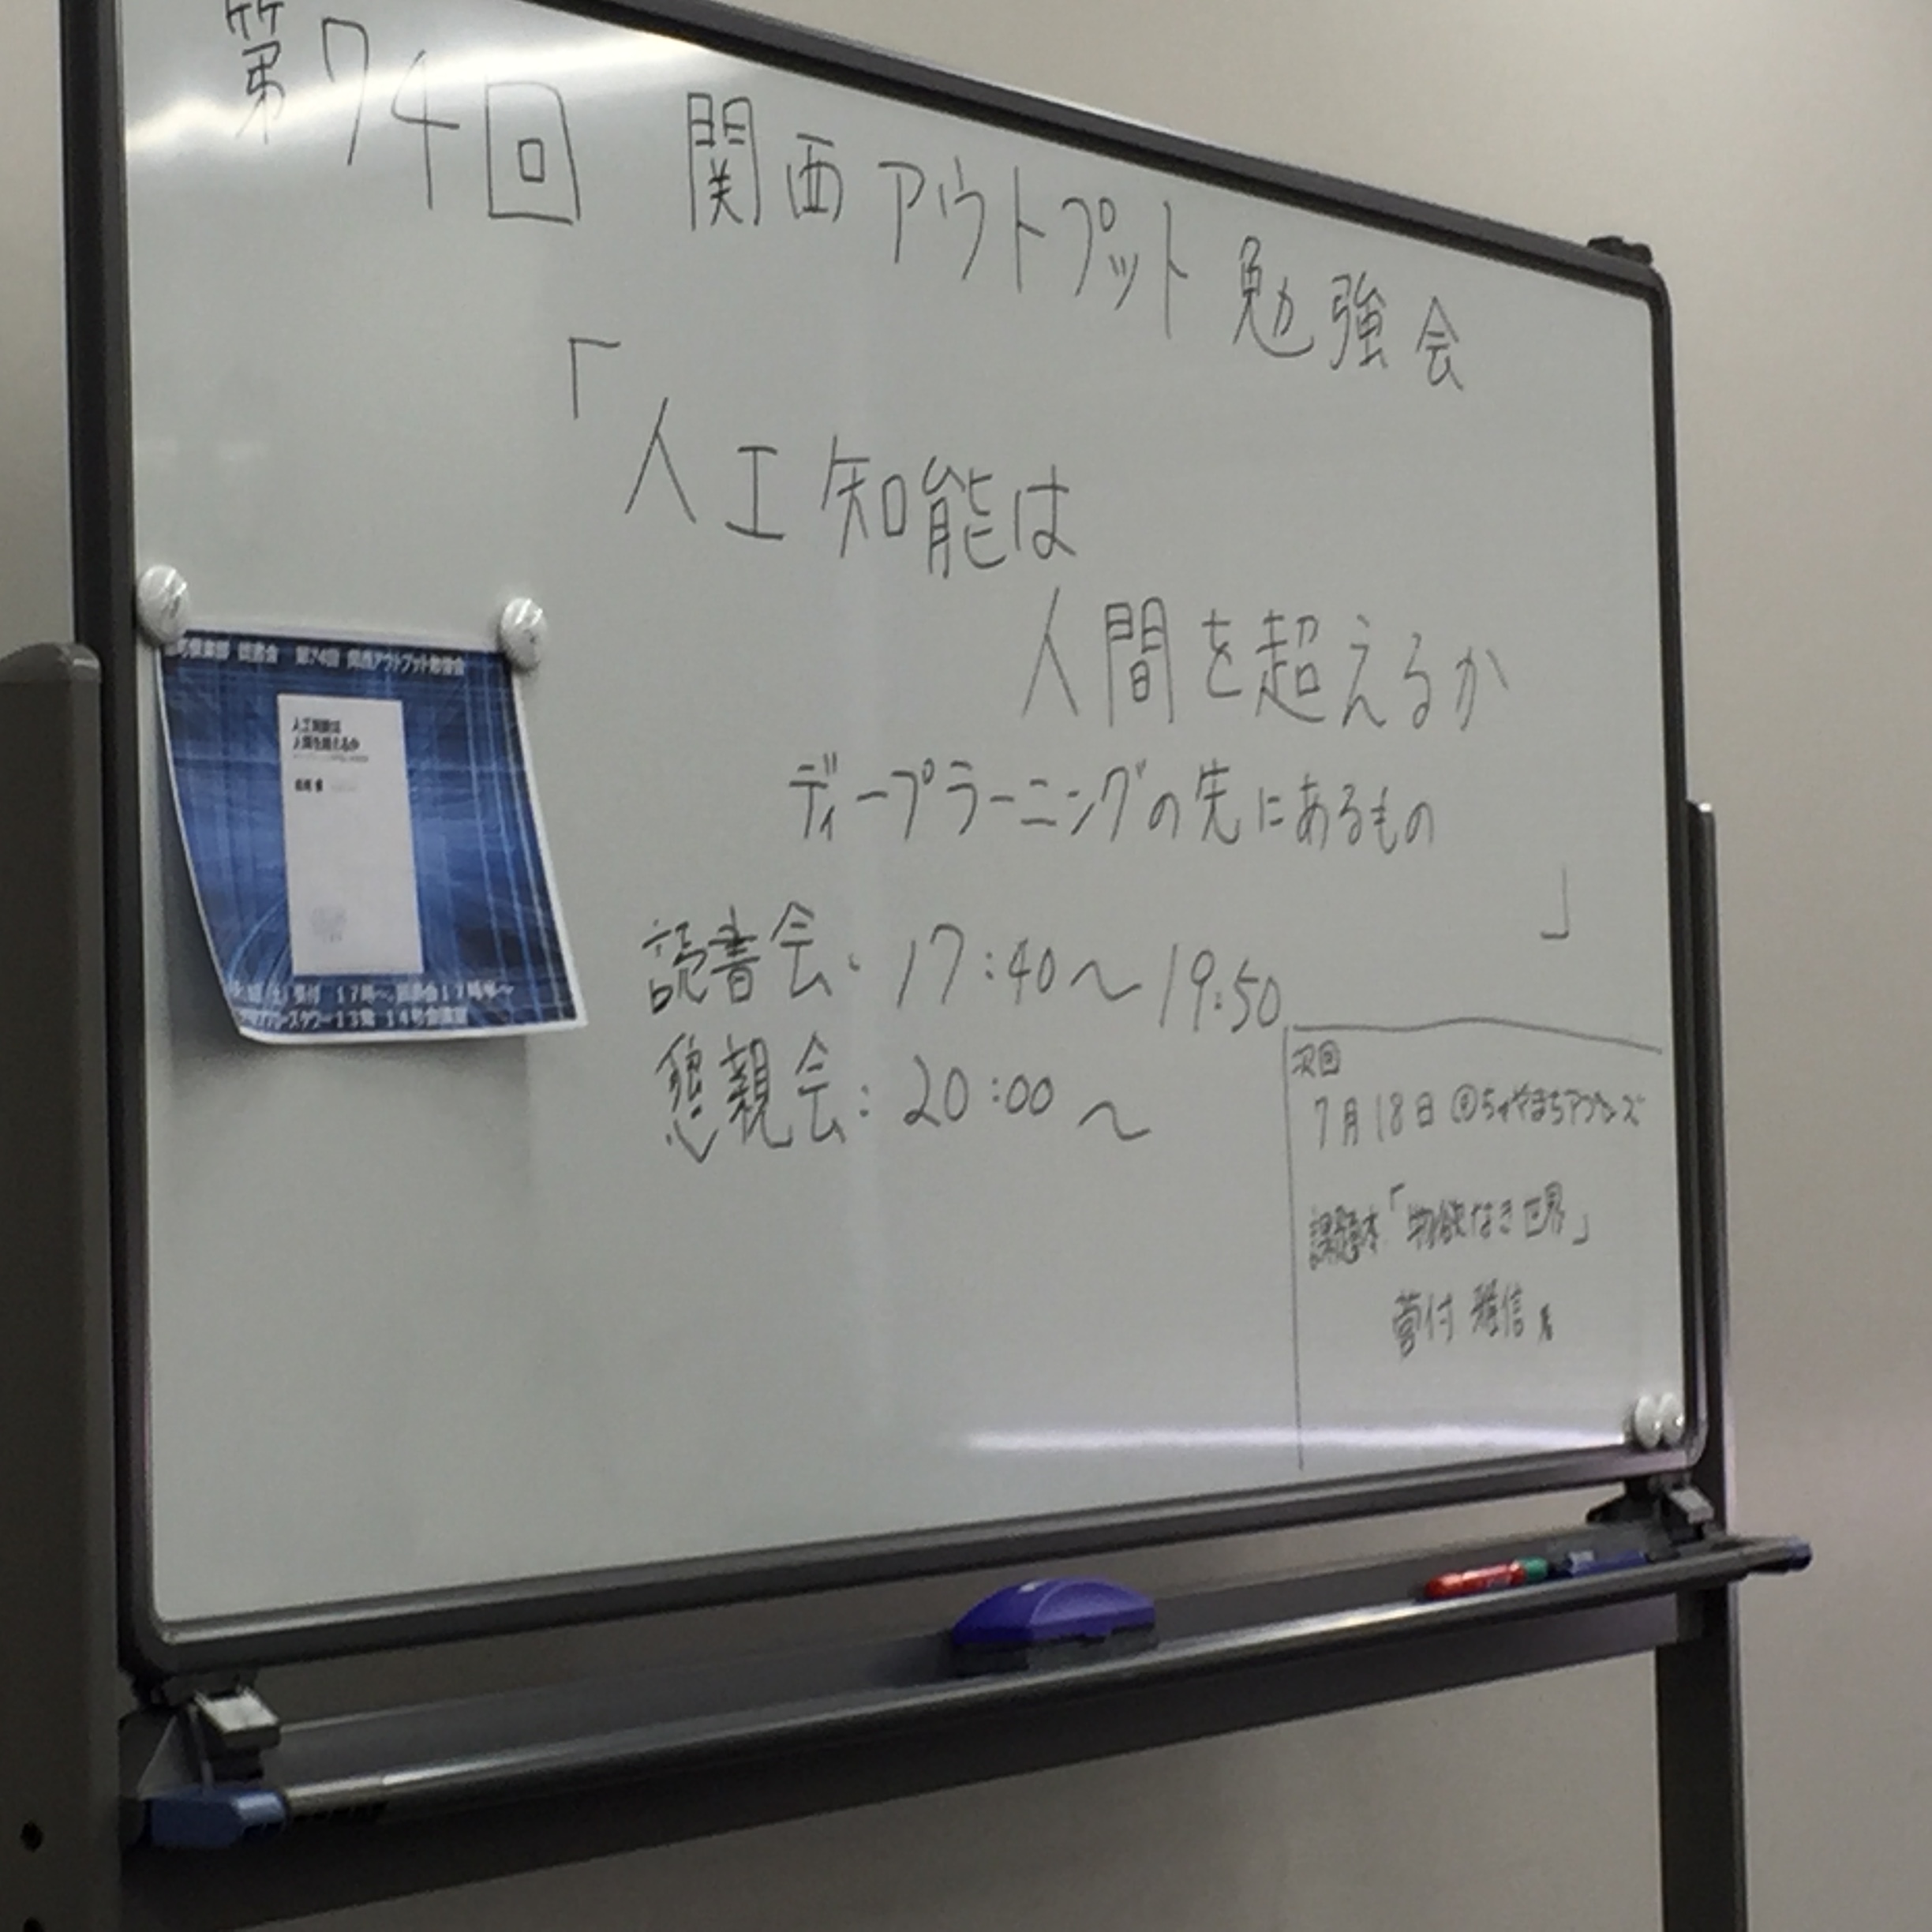 第74回 関西アウトプット勉強会
「人工知能は
人間を超えるか
ディープラーニングの先にあるもの
」
読書会: 17:40〜19:50
懇親会: 20:00〜
次回
7月18日 @ちゃやまちアプローズ
課題本「物欲なき世界」
菅付 雅信 著
読書会 第74回 関西アウトプット勉強会
人工知能は
人間を超えるか
松尾 豊
受付 17時〜 読書会17時半〜
タワー13階 14号会議室